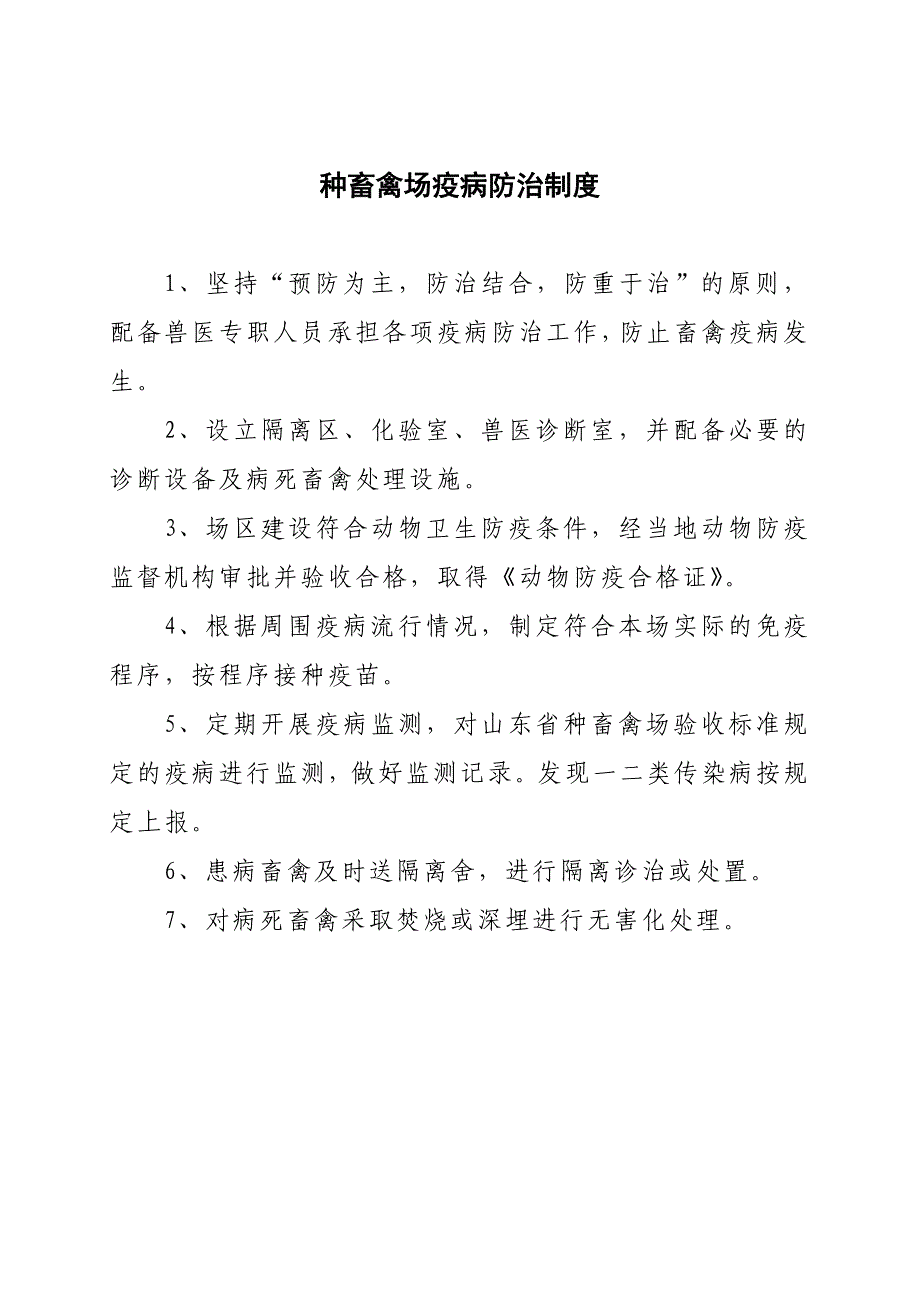 种畜禽场疫病防治制度
1、坚持“预防为主，防治结合，防重于治”的原则，
配备兽医专职人员承担各项疫病防治工作，防止畜禽疫病发
生。
2、设立隔离区、化验室、兽医诊断室，并配备必要的
诊断设备及病死畜禽处理设施。
3、场区建设符合动物卫生防疫条件，经当地动物防疫
监督机构审批并验收合格，取得《动物防疫合格证》。
4、根据周围疫病流行情况，制定符合本场实际的免疫
程序，按程序接种疫苗。
5、定期开展疫病监测，对山东省种畜禽场验收标准规
定的疫病进行监测，做好监测记录。发现一二类传染病按规
定上报。
6、患病畜禽及时送隔离舍，进行隔离诊治或处置。
7、对病死畜禽采取焚烧或深埋进行无害化处理。